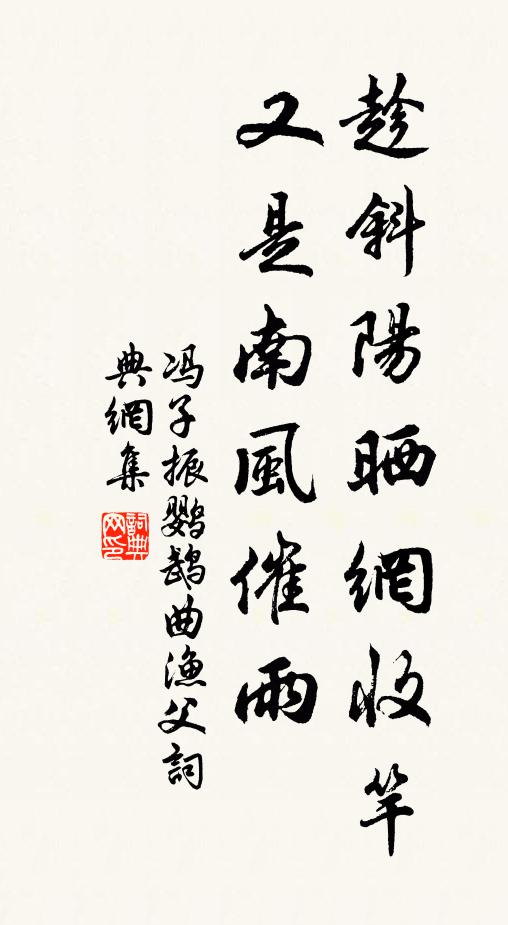 趁斜陽晒網收竿
又是南風催雨
冯子振鹦鵡曲渔父詞
典網集
詞典
网印